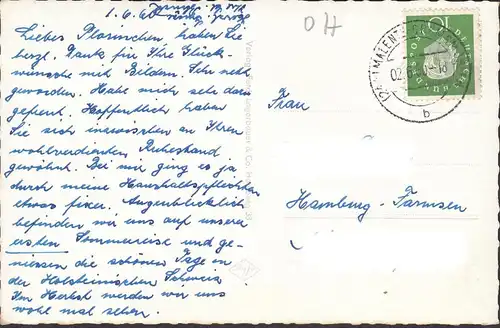 1.6.60
Liebes Plasmchen, haben Sie
herzl. Dank für Ihre Glück-
wünsche mit Bildern. Sehr nett
geworden. Habe mich sehr dazu
gefreut. Hoffentlich haben
Sie sich inzwischen an Ihren
wohlverdienten Ruhestand
gewöhnt. Bei mir ging es ja
durch meine Haushaltspflichten
etwas fixer. Augenblicklich
befinden wir uns auf unserer
ersten Sommerreise und ge-
niessen die schönen Tage in
der Holsteinischen Schweiz
Im Herbst werden wir uns
wohl mal sehen.
OH
Frau
Hamburg-Farmsen
MALENTE
b
10
DEUTSCHE